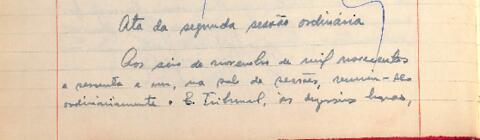 Ata da segunda sessão ordinária
Aos seis de novembro de mil novecentos
e sessenta e um, na sala de sessões, reuniu-se
ordinàriamente o E. Tribunal, às dezesseis horas,